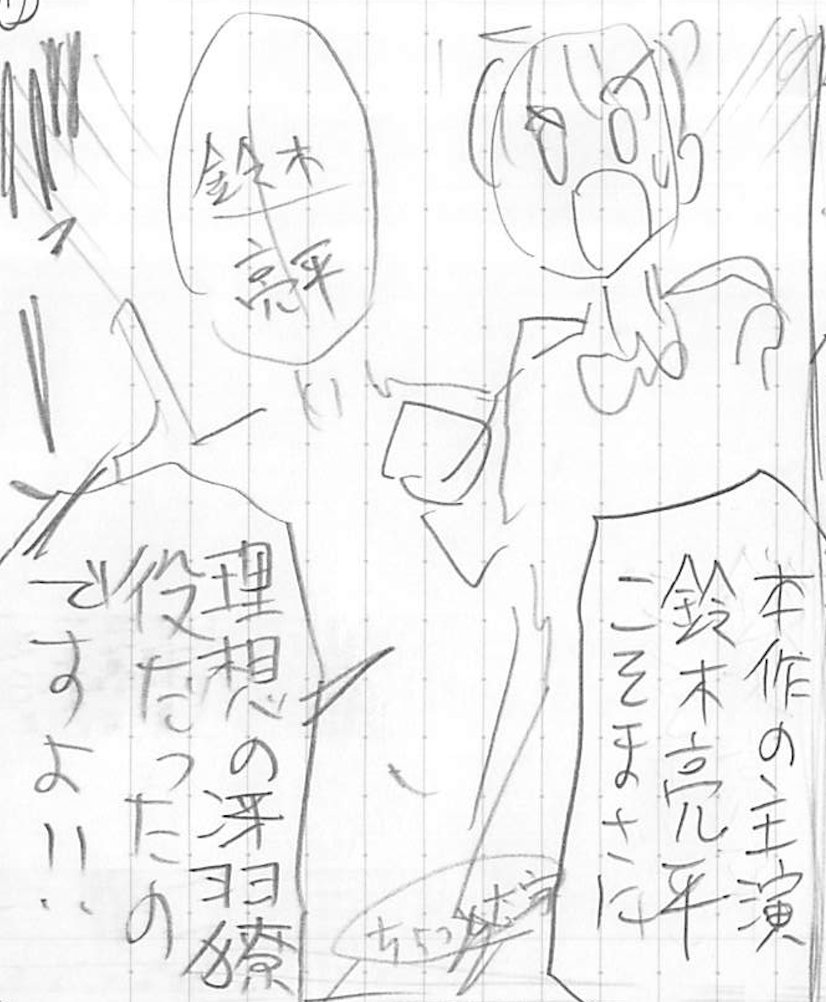 本作の主演
鈴木亮平
こそまさに
鈴木
亮平
理想の冴羽獠
役だったの
ですよ!!